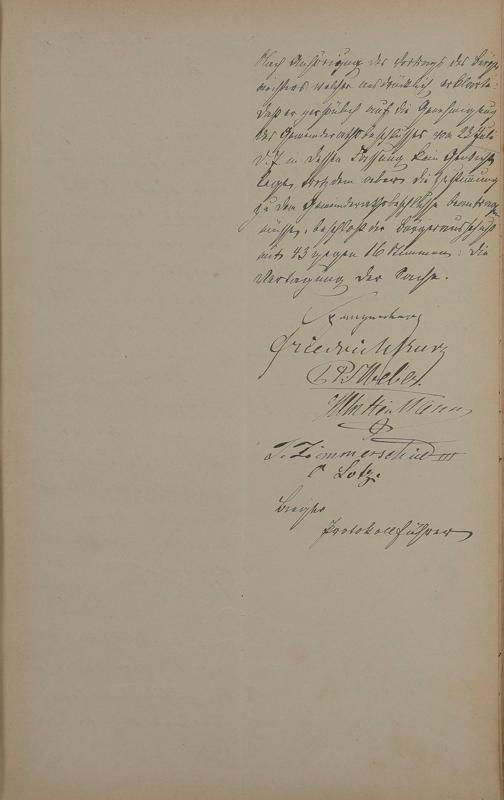 Nach Anhörung des Vortrags des Bürger-
meisters welcher ausdrücklich erklärte:
daß er persönlich auf die Genehmigung
des Gemeinderathsbeschlusses vom 23 Juli
d. J. in dessen Fassung kein Gewicht
lege, trotzdem aber die Zustimmung
zu dem Gemeinderathsbeschlusse beantragen
müsse, beschloß der Bürgerausschuß
mit 43 gegen 16 Stimmen: die
Vertagung der Sache.
Friedrich Kurz
Weber
J. Zimmerschied
C Lotz.
Protokollführer